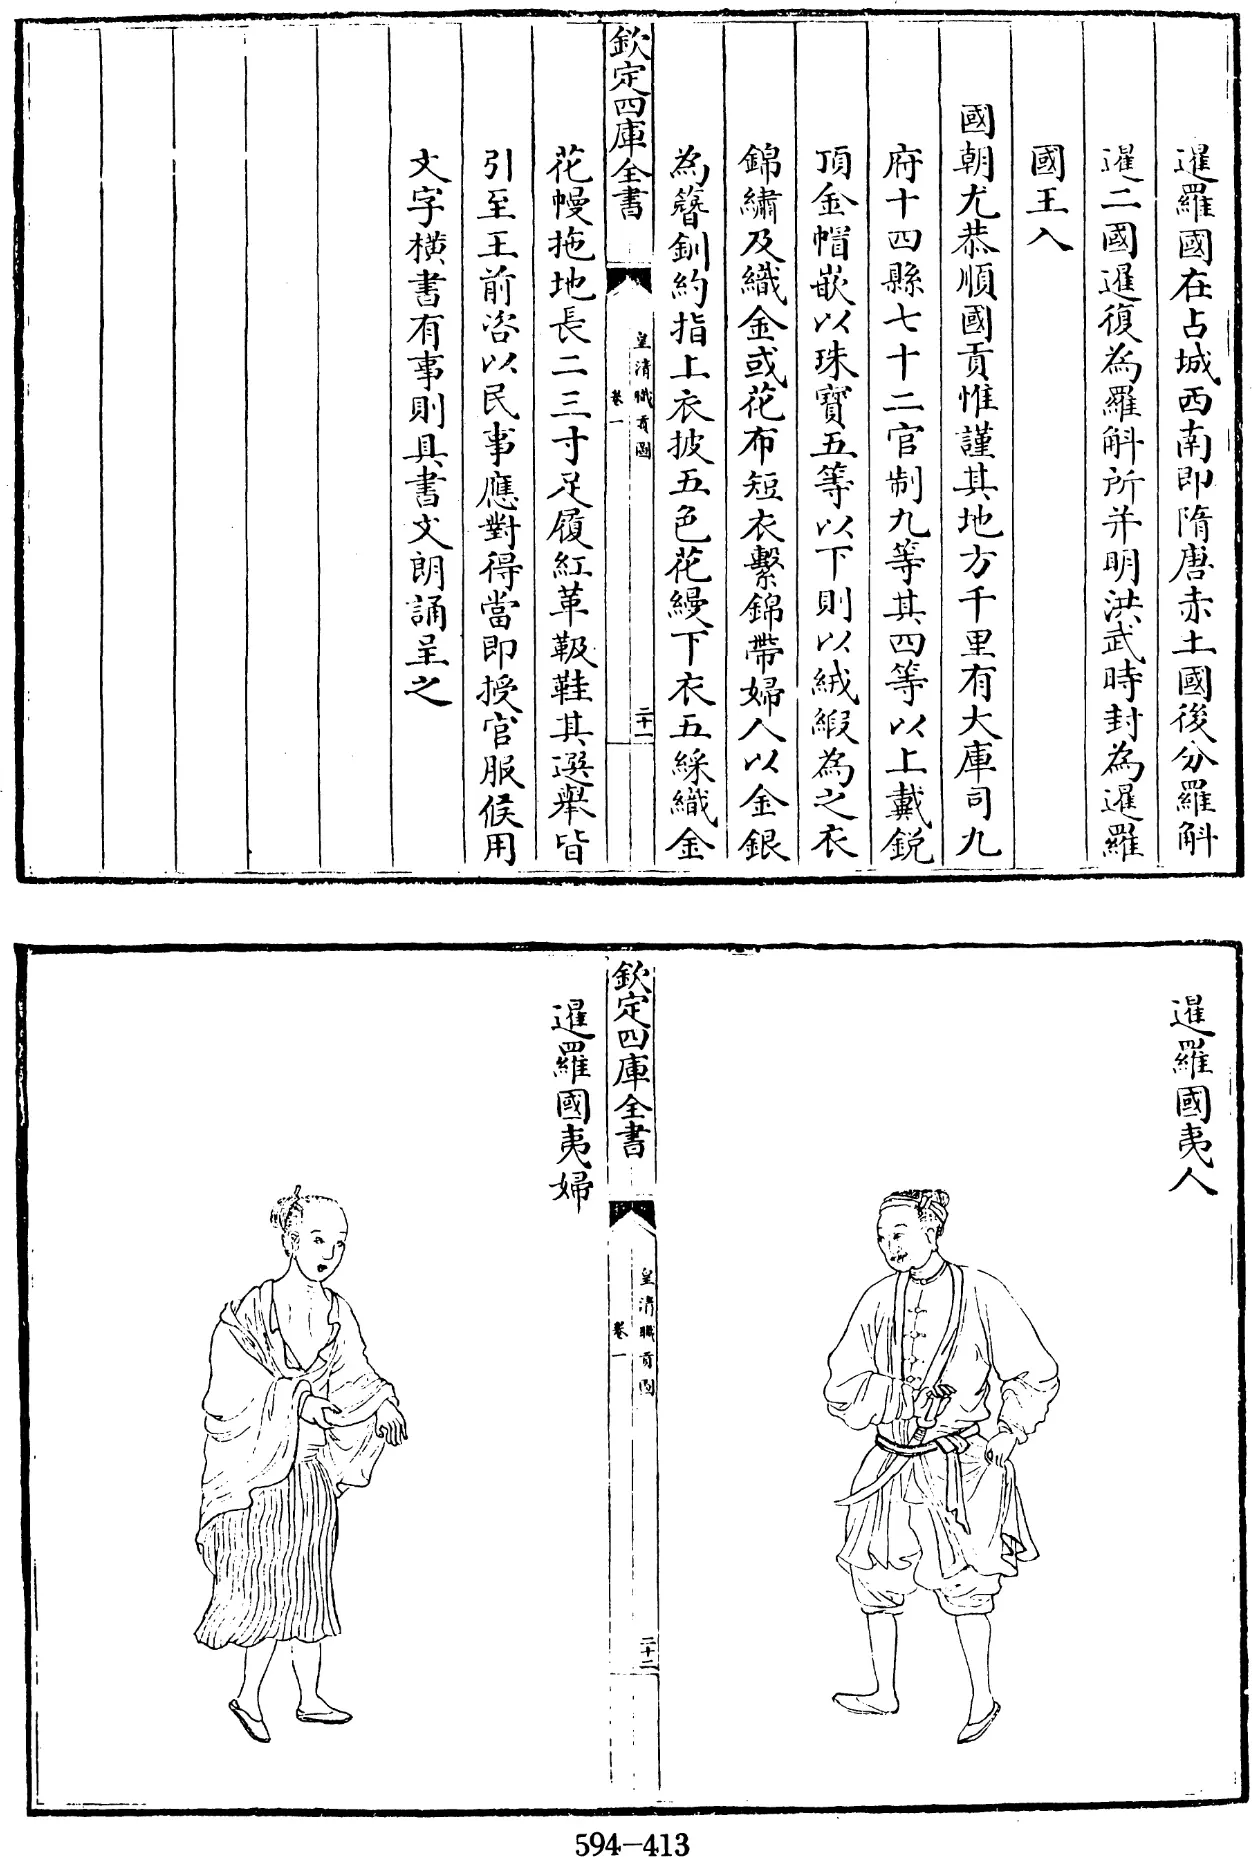 暹羅國在占城西南即隋唐赤土國後分羅斛
暹二國暹復為羅斛所并明洪武時封為暹羅
國王入
國朝尤恭順國貢惟謹其地方千里有大庫司九
府十四縣七十二官制九等其四等以上戴銳
頂金帽嵌以珠寶五等以下則以絨緞為之衣
錦繡及織金或花布短衣繫錦帶婦人以金銀
為簪釧約指上衣披五色花縵下衣五綵織金
欽定四庫全書
皇清職貢圖
卷一
二十一
花幔拖地長二三寸足履紅革靸鞋其選舉皆
引至王前咨以民事應對得當即授官服候用
文字橫書有事則具書文朗誦呈之
暹羅國夷人
欽定四庫全書
皇清職貢圖
卷一
二十二
暹羅國夷婦
594-413